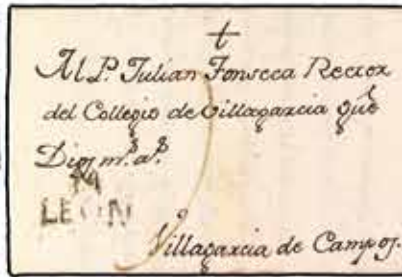 †
Al P.e Julian Fonseca Rector
del Collegio de Villagarcia que
Dios m.s a.s
LEON
Villagarcia de Campos.